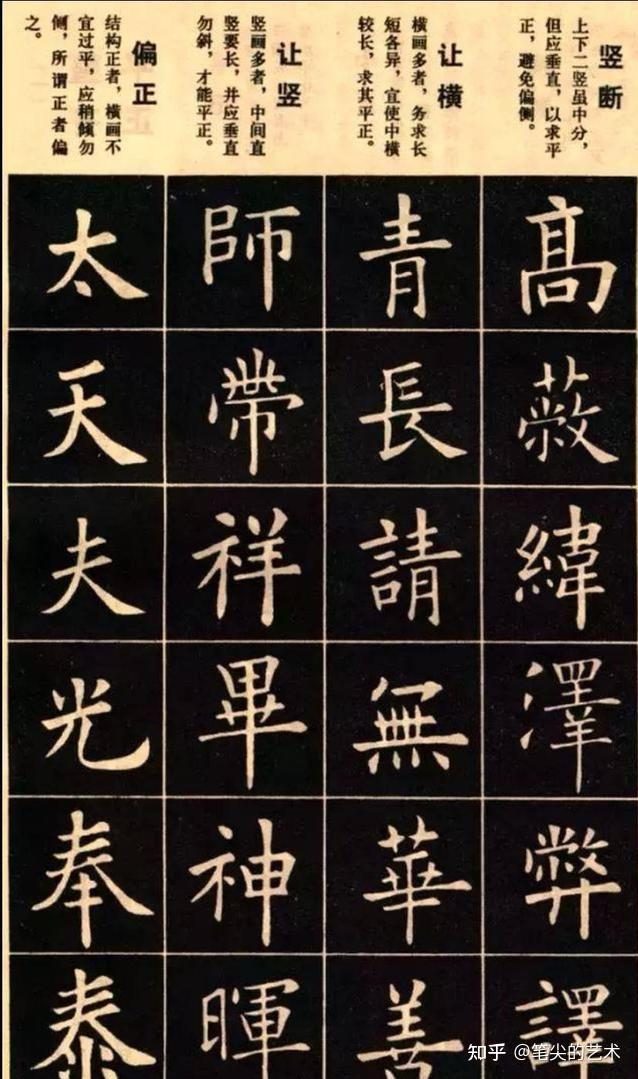 竖断
上下二竖虽中分，
但应垂直，以求平
正，避免偏侧。
高
蔽
緯
澤
弊
譯
让横
横画多者，务求长
短各异，宜使中横
较长，求其平正。
青
長
請
無
華
善
让竖
竖画多者，中间直
竖要长，并应垂直
勿斜，才能平正。
師
帶
祥
畢
神
暉
偏正
结构正者，横画不
宜过平，应稍倾勿
侧，所谓正者偏
之。
太
天
夫
光
奉
泰
知乎 @笔尖的艺术